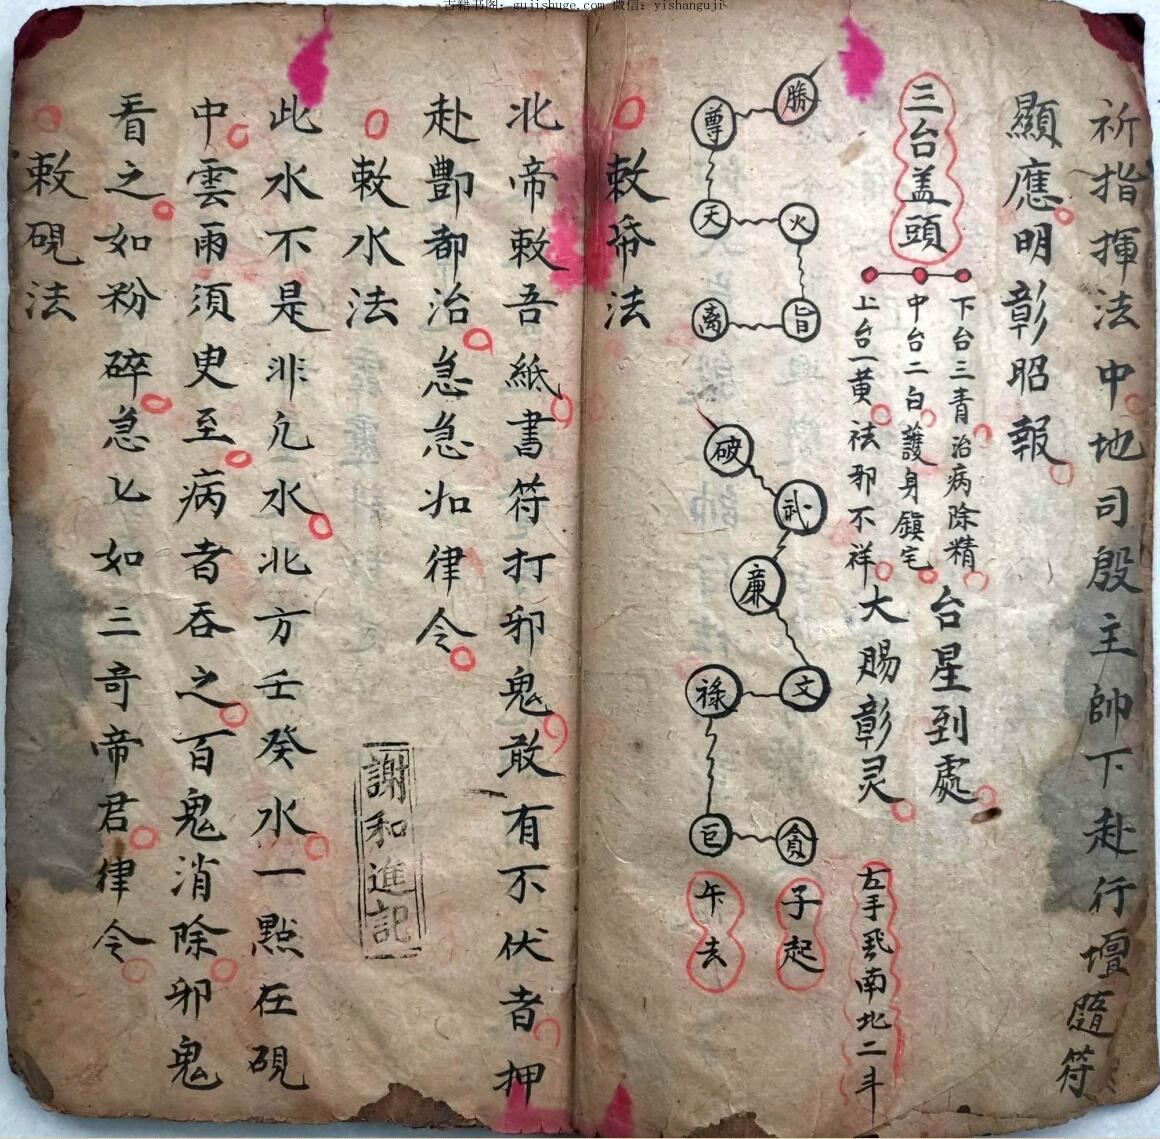 古籍书图: gujishuge.com 微信: yishanguji
祈指揮法中地司殷主帥下赴行壇隨符
顯應明彰昭報
三台盖頭
下台三青治病除精
中台二白護身鎮宅
上台一黄祛邪不祥
台星到處
大賜彰灵
左手飛南北二斗
勝
尊
天
火
旨
离
破
武
廉
文
祿
巨
貪
子起
午去
敕帋法
北帝敕吾紙書符打邪鬼敢有不伏者押
赴酆都治急急如律令
敕水法
謝和進記
此水不是非凢水北方壬癸水一點在硯
中雲雨須臾至病者吞之百鬼消除邪鬼
看之如粉碎急匕如三奇帝君律令
敕硯法